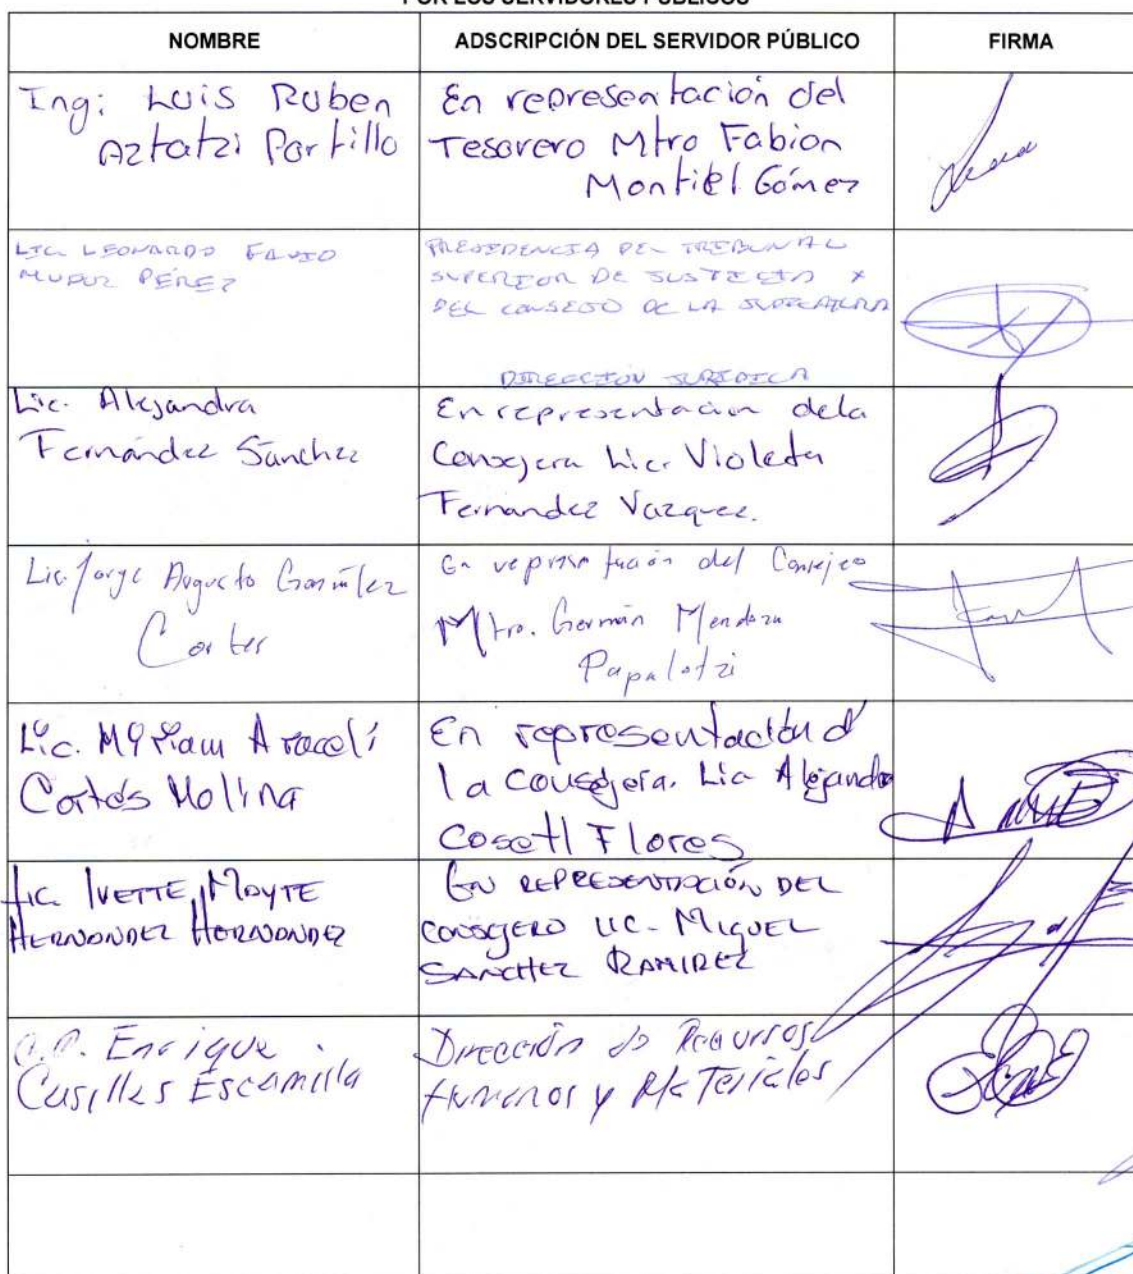 POR LOS SERVIDORES PÚBLICOS
NOMBRE
ADSCRIPCIÓN DEL SERVIDOR PÚBLICO
FIRMA
Ing: Luis Ruben
Aztatzi Portillo
En representación del
Tesorero Mtro Fabion
Montiel Gómez
LIC. LEONARDO FAVIO
MUÑOZ PÉREZ
PRESIDENCIA DEL TRIBUNAL
SUPERIOR DE JUSTICIA Y
DEL CONSEJO DE LA JUDICATURA
DIRECCIÓN JURIDICA
Lic. Alejandra
Fernández Sánchez
En representación dela
Consejera Lic. Violeta
Fernandez Vazquez.
Lic. Jorge Augusto González
Cortes
En representación del Consejero
Mtro. Germán Mendoza
Papalotzi
Lic. Myriam Araceli
Cortés Molina
En representación d
la Consejera. Lic Alejandra
Cosetl Flores
Lic. IVETTE MAYTE
HERNANDEZ HERNANDEZ
EN REPRESENTACIÓN DEL
CONSEJERO LIC. MIGUEL
SANCHEZ RAMIREZ
C.P. Enrique
Casillas Escamilla
Dirección de Recursos
Humanos y Materiales